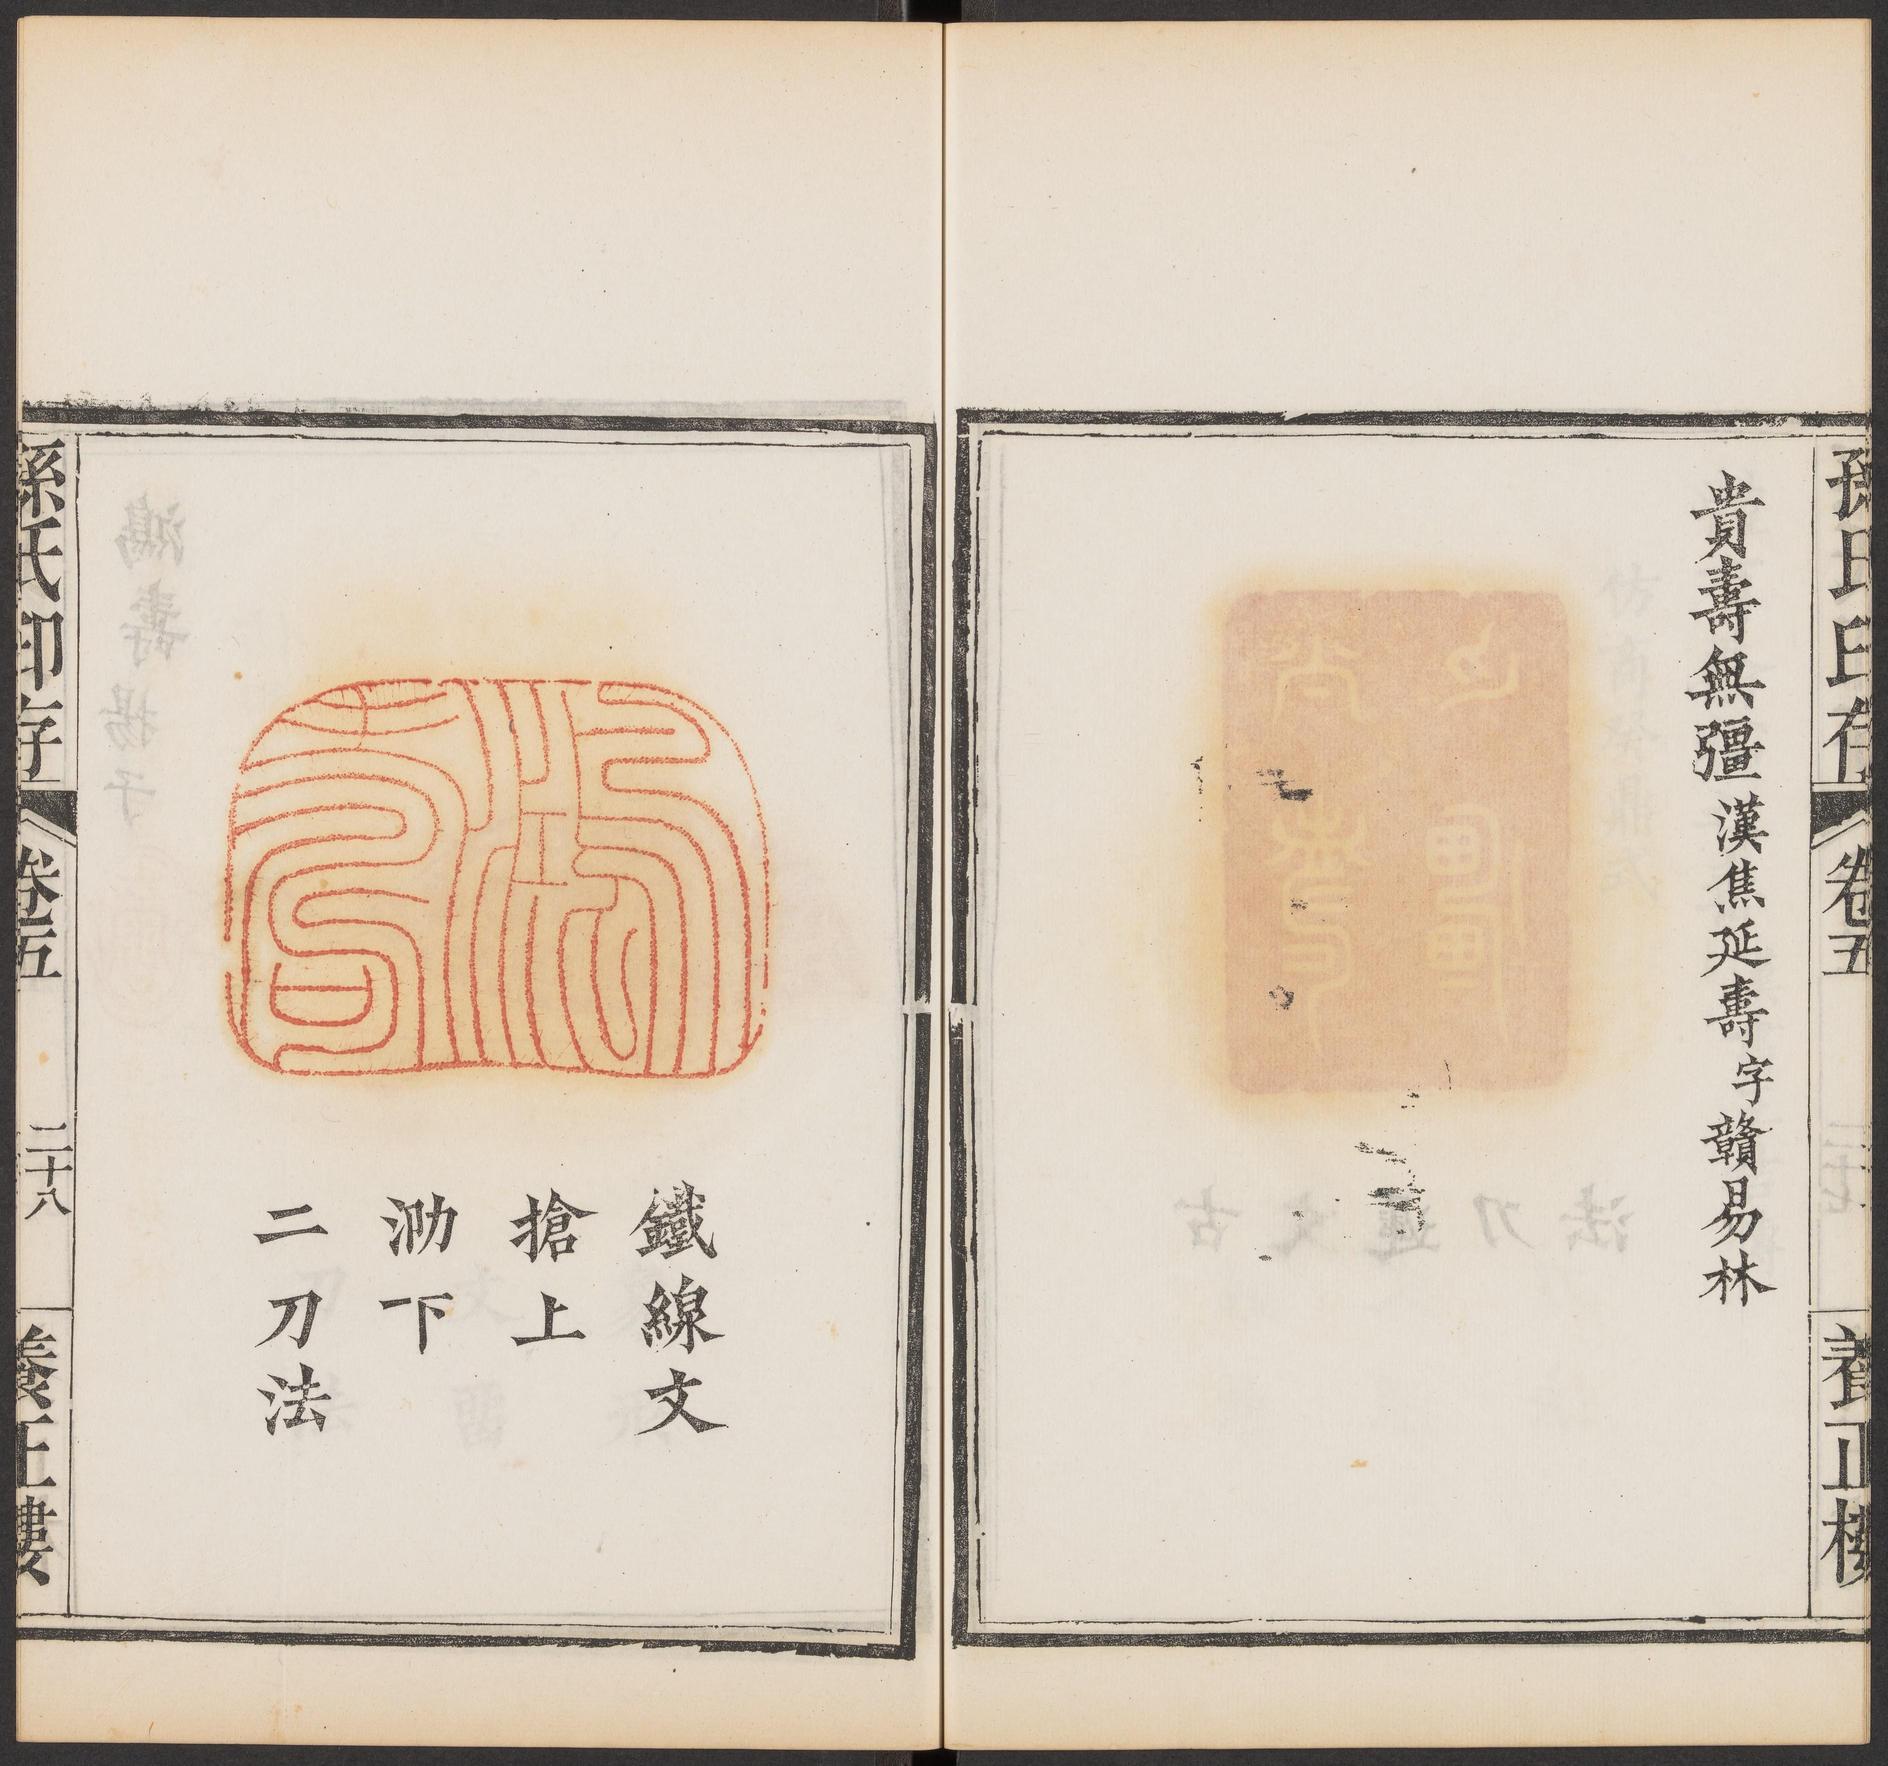 孫氏印存
卷五
養正樓
貴壽無彊漢焦延壽字贛易林
鐵線文
搶上
泐下
二刀法
孫氏印存
卷五
二十八
養正樓